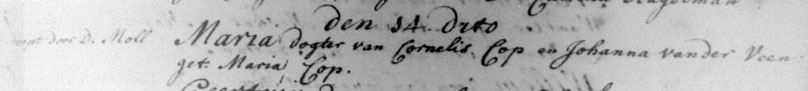 den 14 dito
door D. Moll Maria dogter van Cornelis Cop en Johanna vander Veen
get: Maria Cop.